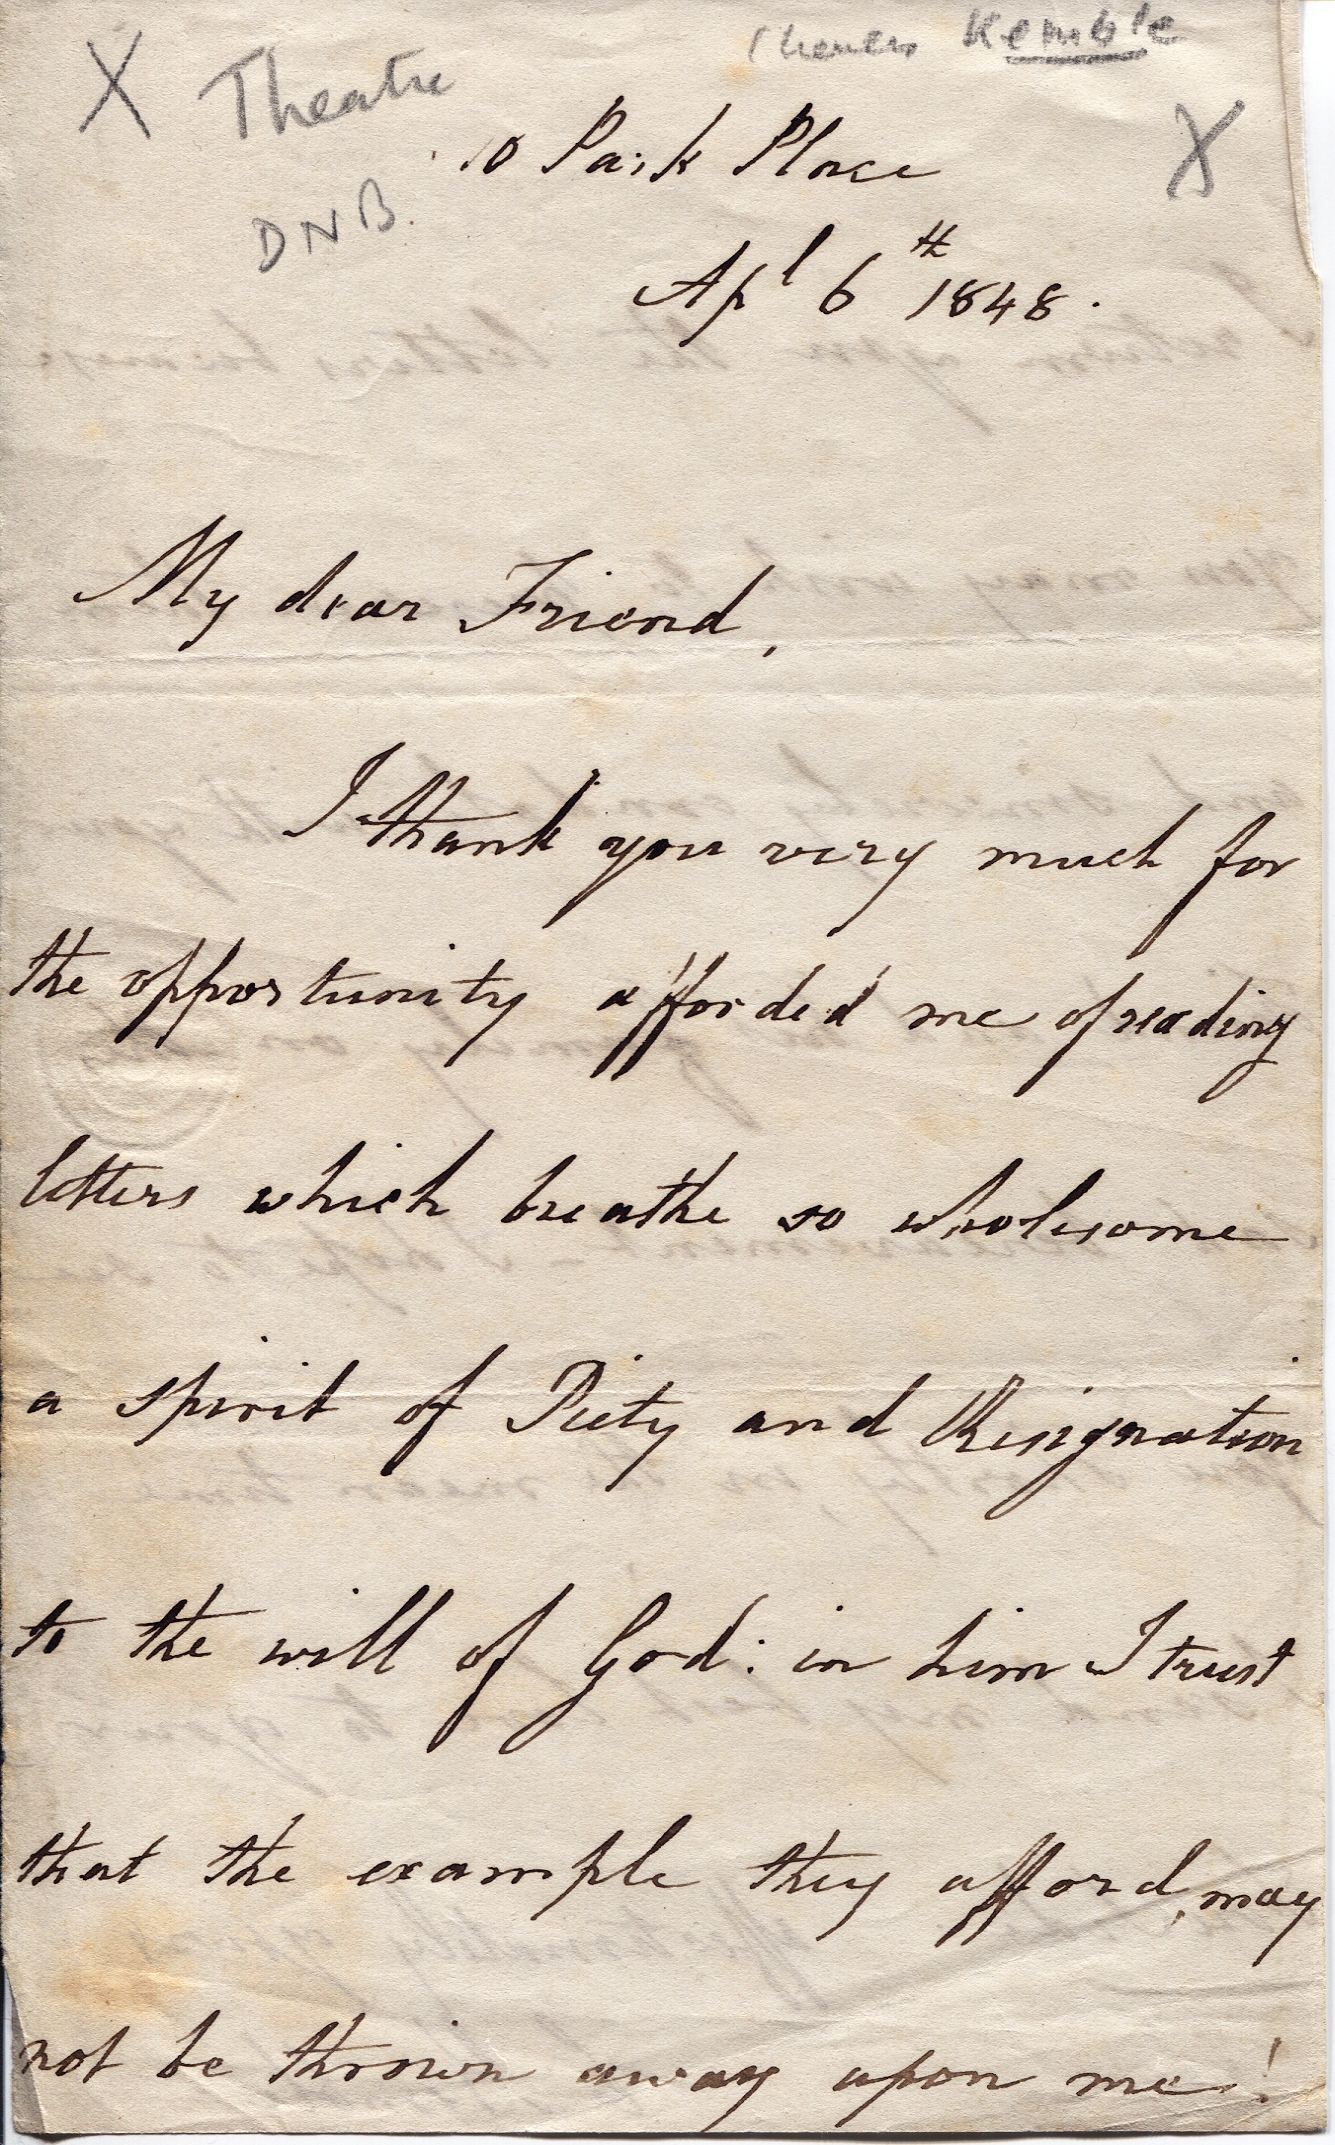 Kemble
X Theatre
X
10 Park Place
DNB.
Apl 6th 1848.
My dear Friend,
I thank you very much for
the opportunity afforded me of reading
letters which breathe so wholesome
a spirit of Piety and Resignation
to the will of God: in him I trust
that the example they afford, may
not be thrown away upon me!